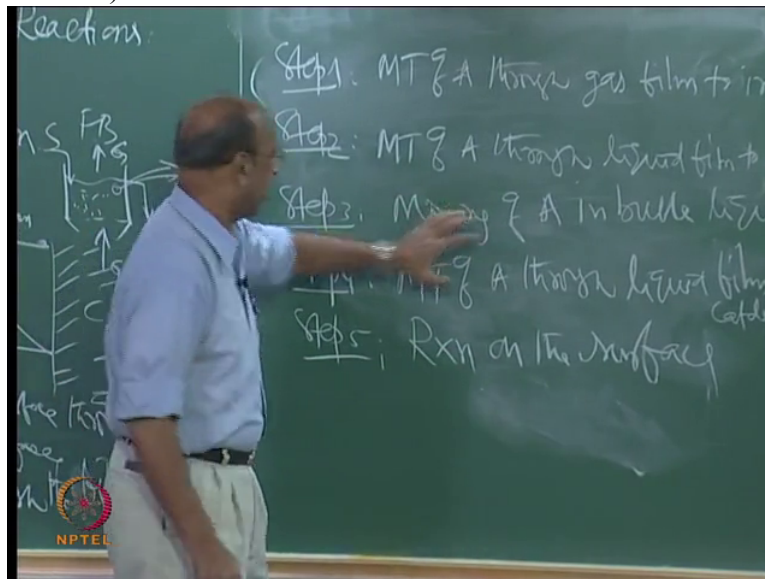 Reactions:
FB
Step1: MT of A through gas film to in
Step2: MT of A through liquid film to
Step3: Mixing of A in bulk liqu
MT of A through liquid film
Step5; Rxn on the surface
NPTEL